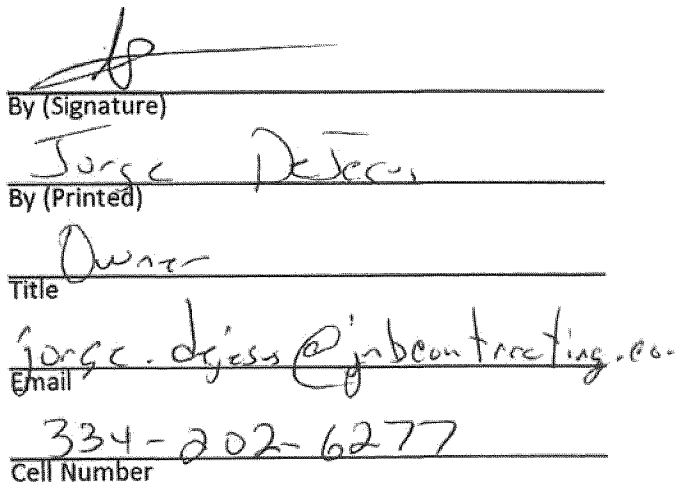 By (Signature)
Jorge DeJesus
By (Printed)
Owner
Title
jorge.dejesus@jnbcontracting.co
Email
334-202-6277
Cell Number